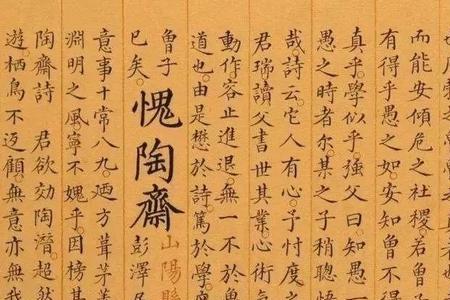 而能安傾危之社稷若曾
有得乎愚之如安知曾不得
真乎學似乎強父曰知愚
愚之時者尔某之子稍聰
哉詩云它人有心予忖度之
君瑞讀父書世其業心術氣
動作容止進退無一不於
道也由是懋於詩篤於學
魯子
愧陶齋
山陽縣
彭澤
已矣
意事十常八九迺方葺茅
淵明之風寧不媿乎因榜其
陶齋詩 君欲効陶潛超然
遊栖鳥不迈顧無意亦無我